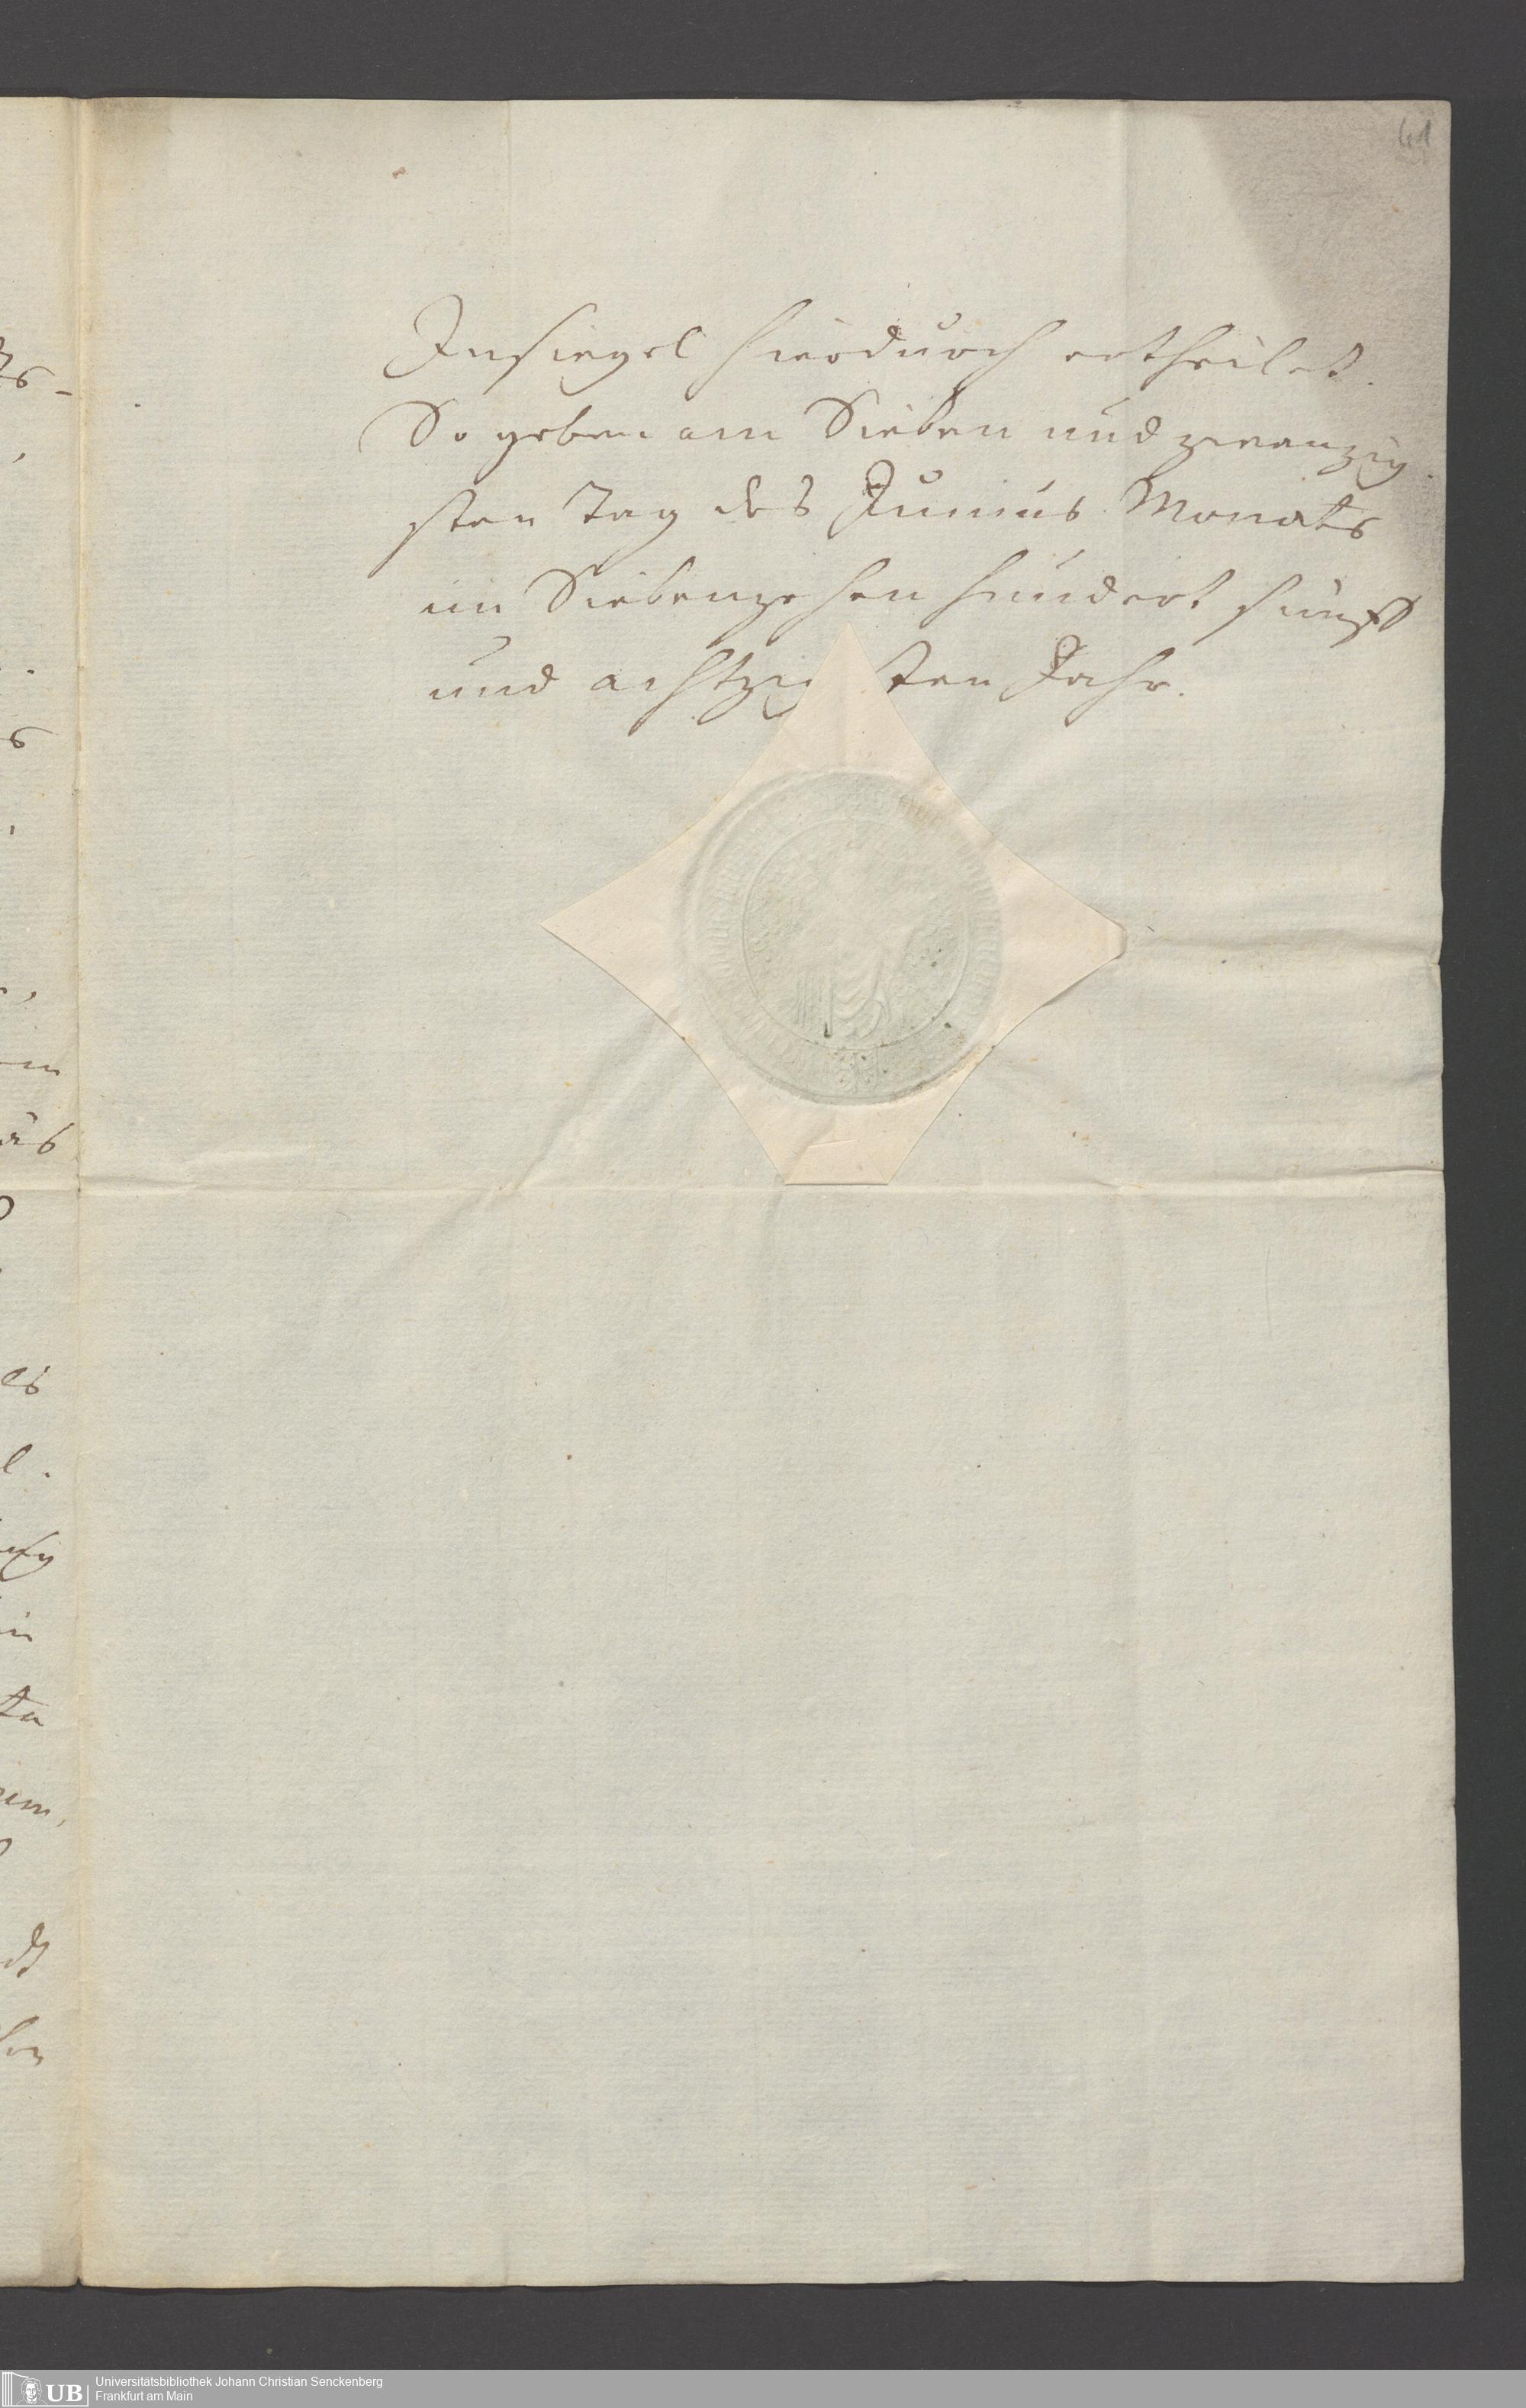 41
Insiegel hierdurch ertheilet.
So geben am Sieben und zwanzig
sten Tag des Junius Monats
im Siebenzehen hundert fünff
und achtzigsten Jahr.
UB
Universitätsbibliothek Johann Christian Senckenberg
Frankfurt am Main